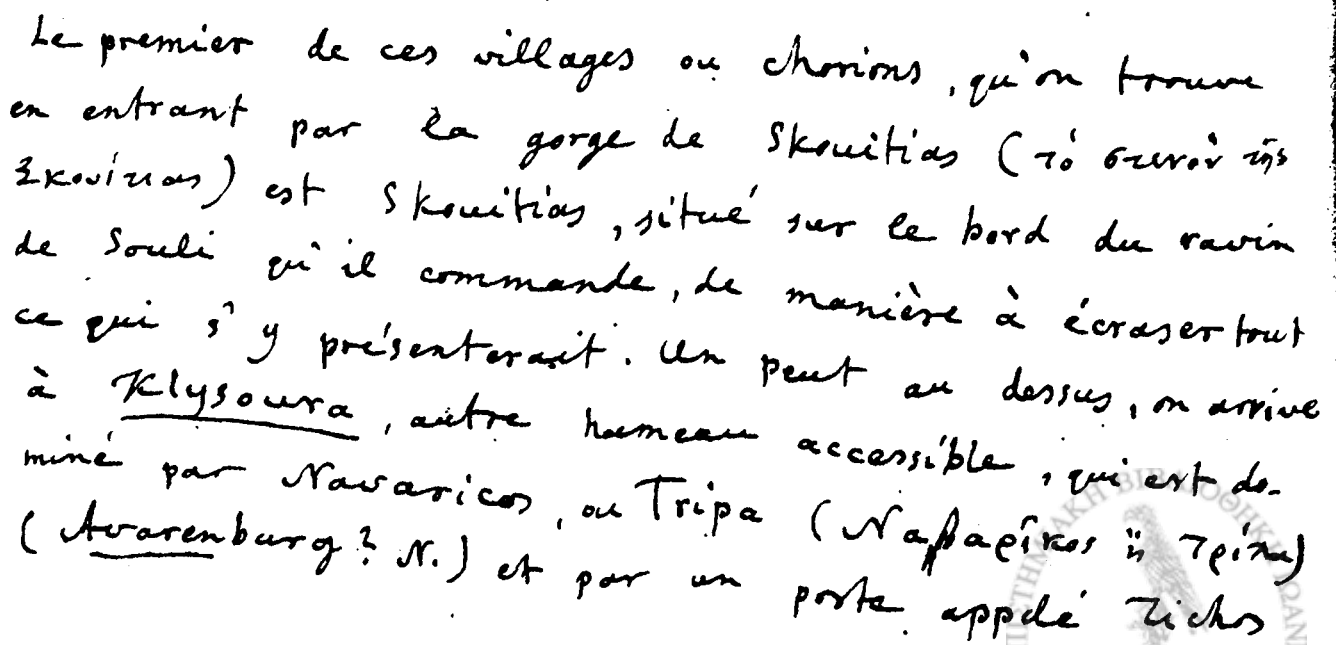 Le premier de ces villages ou chorions, qu'on trouve
en entrant par la gorge de Skouitias (τὸ στενὸν τῆς
Σκουίτιας) est Skouitias, situé sur le bord du ravin
de Souli qu'il commande, de manière à écraser tout
ce qui s'y présenterait. Un peut au dessus, on arrive
à Klysoura, autre hameau accessible, qui est do-
miné par Navaricos, ou Tripa (Ναβαρῖκος ἢ τρίπα)
(Avarenburg? N.) et par un poste appelé Tichos